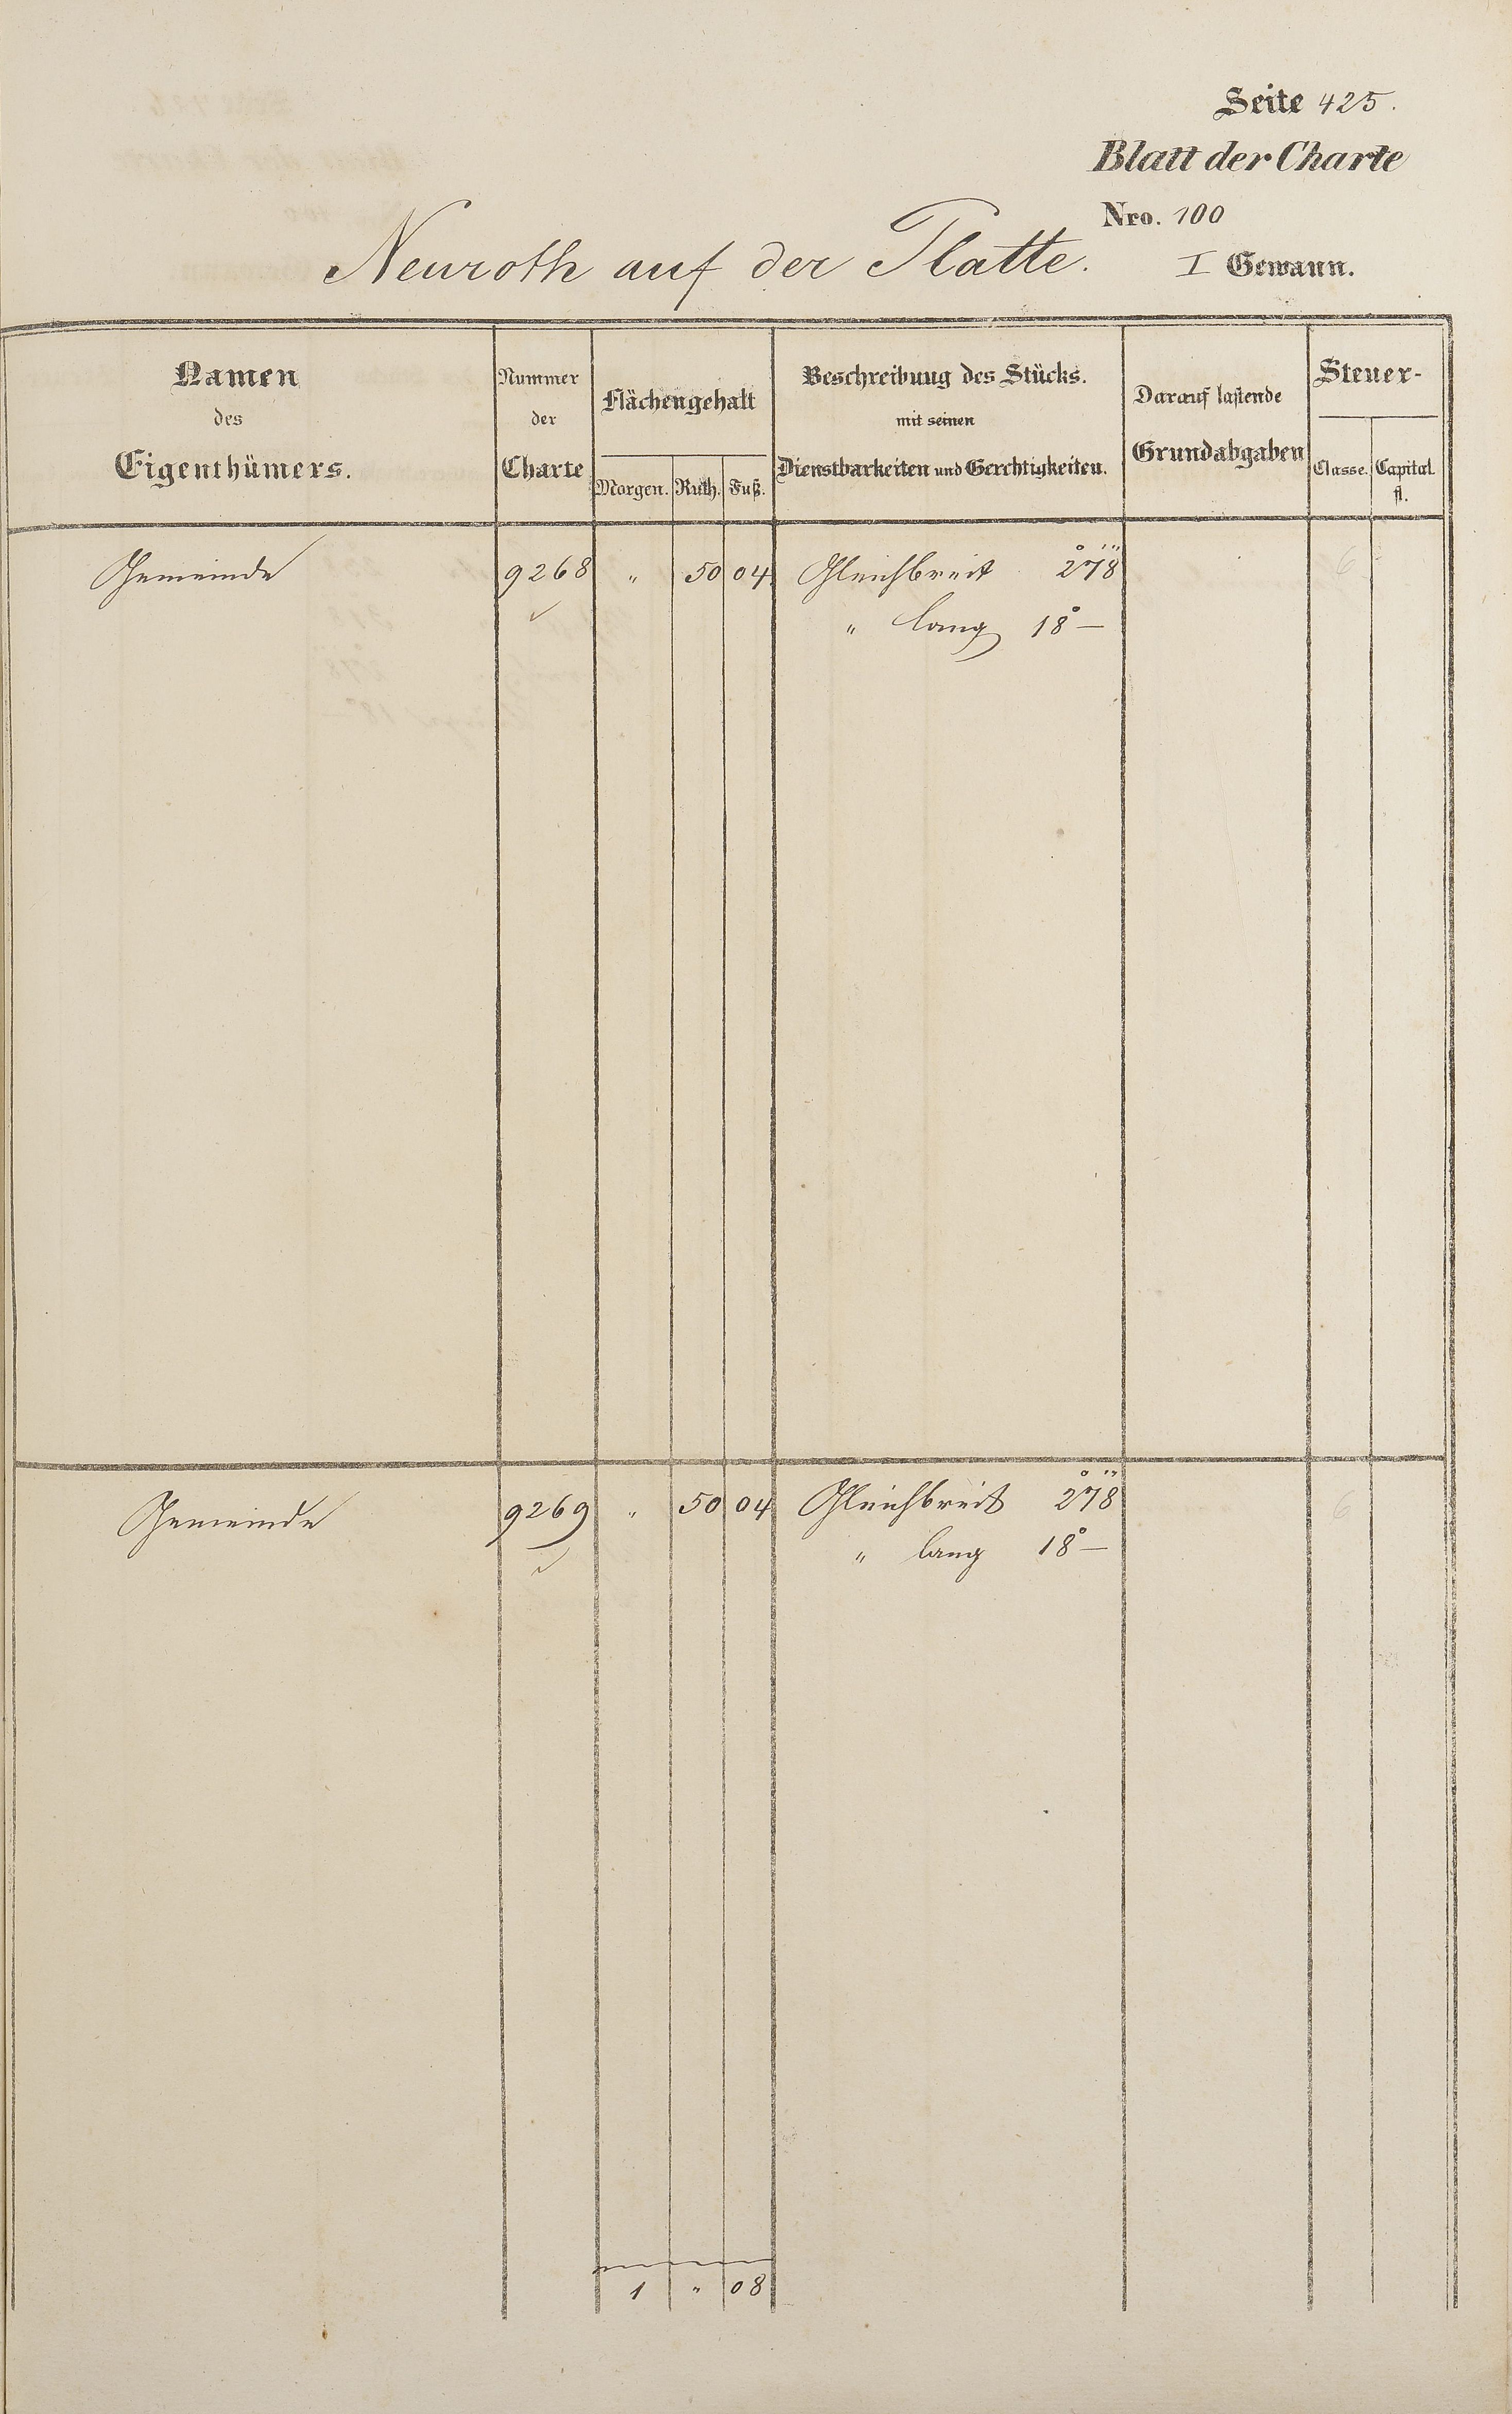 Seite 425.
Blatt der Charte
Nro. 100
Neuroth auf der Platte. I Gewann.
Namen des Eigenthümers.
Nummer der Charte
Flächengehalt
Morgen. Ruth. Fuß.
Beschreibung des Stücks. mit seinen Dienstbarkeiten und Gerechtigkeiten.
Darauf lastende Grundabgaben
Steuer-
Classe. Capital. fl.
Gemeinde 9268 " 50 04 Gleichbreit 2°78''' 6
" lang 18° —
Gemeinde 9269 " 50 04 Gleichbreit 2°78''' 6
" lang 18° —
1 " 08